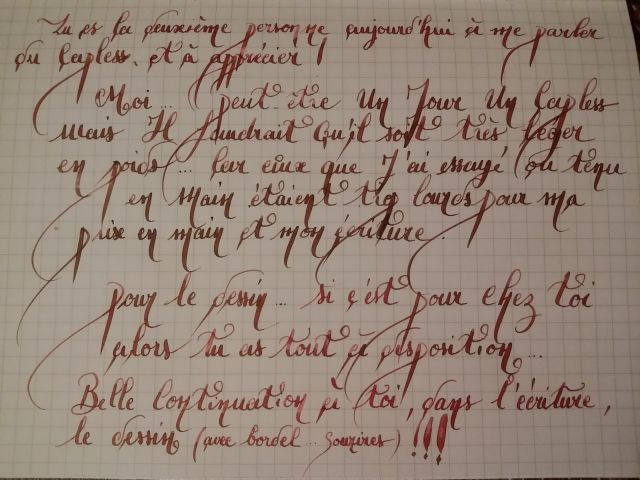 Tu es la deuxième personne aujourd'hui à me parler
du Capless. et à apprécier !
Moi... peut-être Un Jour Un Capless
Mais Il faudrait Qu'il soit très léger
en poids... Car ceux que J'ai essayé, ou tenu
en Main étaient trop lourds pour ma
prise en main et mon écriture.
pour le dessin... si c'est pour chez toi
alors tu as tout à disposition...
Belle Continuation à toi, dans l'écriture,
le dessin (avec bordel... Sourires) !!!